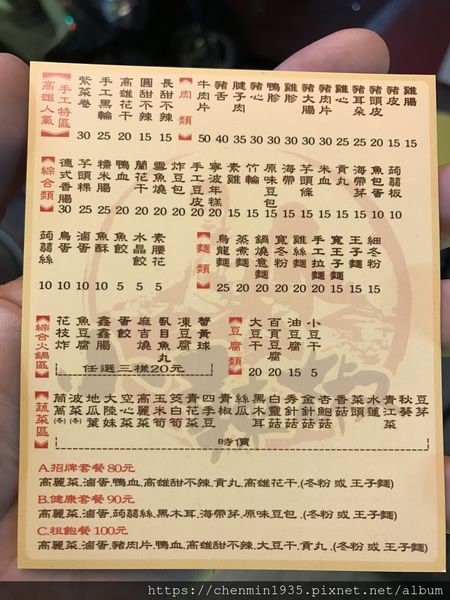 【高雄人氣
手工特區】
紫菜卷 30
手工黑輪 25
高雄花干 20
圓甜不辣 15
長甜不辣 15
【肉類】
牛肉片 50
豬舌 40
腱子肉 35
豬心 30
鴨胗 30
雞胗 30
豬大腸 30
豬肉片 30
雞心 25
豬耳朵 25
豬頭皮 20
豬皮 15
雞腸 15
【綜合類】
德式香腸 30
芋頭粿 25
糯米腸 25
鴨血 20
蘭花干 20
雪魚燒 20
炸豆包 20
手工豆皮 20
寧波年糕 20
素雞 15
竹輪 15
原味豆包 15
海帶 15
芋頭條 15
米血 15
貢丸 15
海帶芽 15
魚包蛋 10
蒟蒻板 10
蒟蒻絲 10
鳥蛋 10
滷蛋 10
魚酥 10
魚餃 5
水晶餃 5
素腰花 5
【麵類】
烏龍麵 25
蒸煮麵 20
鍋燒意麵 20
寬冬粉 20
雞絲麵 15
手工拉麵 15
寬王子麵 15
王子麵 15
細冬粉 15
【綜合火鍋區】
花枝炸
魚豆腐
鑫鑫腸
蛋餃
麻吉燒
虱目魚丸
凍豆腐
蟹黃球
任選三樣20元
【豆腐類】
大豆干 20
百頁豆腐 20
油豆腐 15
小豆干 5
【蔬菜區】
茼萵(冬)
菠菜(冬)
地瓜葉
大陸妹
空心菜
高麗菜
玉米筍
筊白筍
青花菜
四季豆
青椒
絲瓜
黑木耳
白靈菇
秀針菇
金針菇
杏鮑菇
香菇
菜頭
水蓮
青江菜
秋葵
豆芽
時價
A.招牌套餐 80元
高麗菜.滷蛋.鴨血.高雄甜不辣.貢丸.高雄花干.(冬粉 或 王子麵)
B.健康套餐 90元
高麗菜.滷蛋.蒟蒻絲.黑木耳.海帶芽.原味豆包.(冬粉 或 王子麵)
C.粗飽餐 100元
高麗菜.滷蛋.豬肉片.鴨血.高雄甜不辣.大豆干.貢丸.(冬粉 或 王子麵)
https://chenmin1935.pixnet.net/album